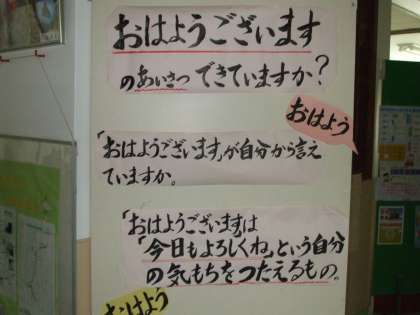 おはようございます
のあいさつできていますか?
おはよう
「おはようございます」が自分から言え
ていますか。
「おはようございます」は
「今日もよろしくね」という自分
の気もちをつたえるもの。
おはよう